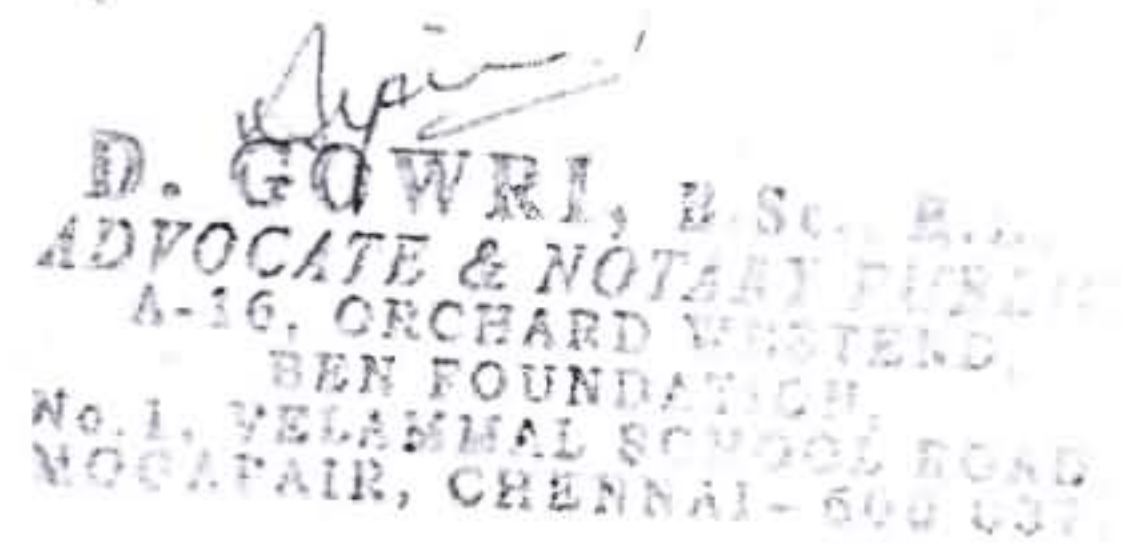 D. GOWRI, B.Sc., B.L.
ADVOCATE & NOTARY PUBLIC
A-16, ORCHARD WESTEND,
BEN FOUNDATION,
No.1, VELAMMAL SCHOOL ROAD
MOGAPAIR, CHENNAI-600 037.